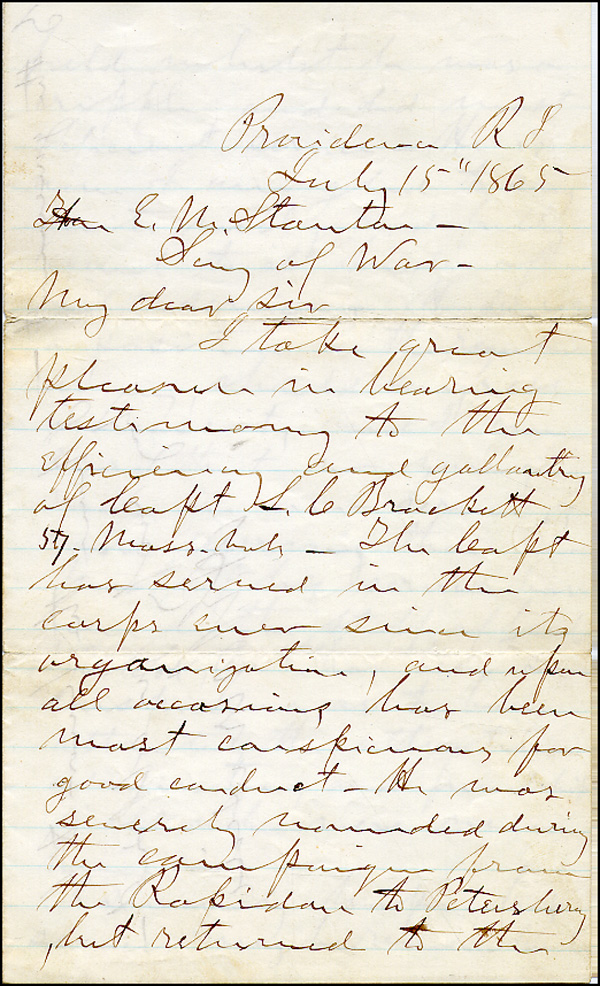 Providence R I
July 15" 1865
Hon E. M. Stanton —
Secy of War —
My dear sir
I take great
pleasure in bearing
testimony to the
efficiency and gallantry
of Capt L. C Brackett
57. Mass. Vols — The Capt
has served in the
corps ever since its
organization, and upon
all occasions has been
most conspicuous for
good conduct — He was
severely wounded during
the campaign from
the Rapidan to Petersburg
, but returned to the